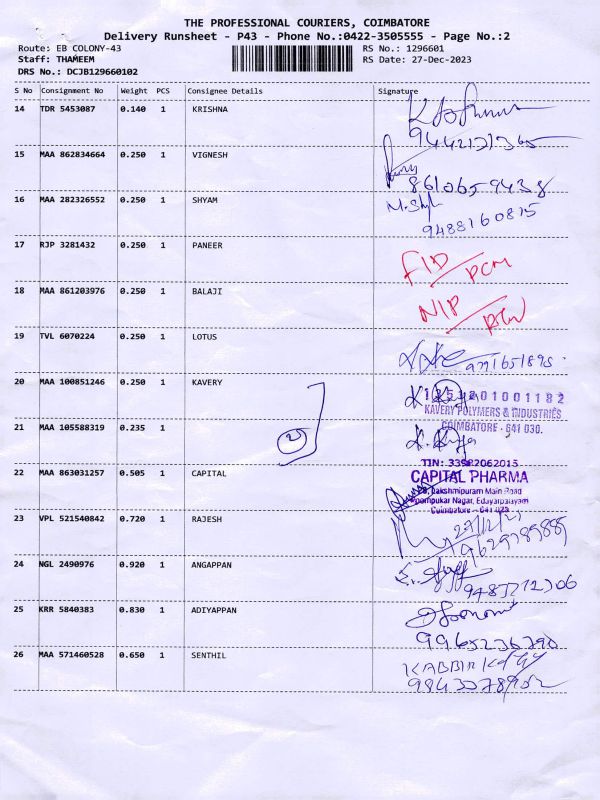 THE PROFESSIONAL COURIERS, COIMBATORE
Delivery Runsheet - P43 - Phone No.:0422-3505555 - Page No.:2
Route: EB COLONY-43 RS No.: 1296601
Staff: THAMEEM RS Date: 27-Dec-2023
DRS No.: DCJB129660102
S No Consignment No Weight PCS Consignee Details Signature
14 TDR 5453087 0.140 1 KRISHNA
15 MAA 862834664 0.250 1 VIGNESH
8610659438
16 MAA 282326552 0.250 1 SHYAM
9488160815
17 RJP 3281432 0.250 1 PANEER
18 MAA 861203976 0.250 1 BALAJI
19 TVL 6070224 0.250 1 LOTUS
20 MAA 100851246 0.250 1 KAVERY
KAVERY POLYMERS & INDUSTRIES
COIMBATORE - 641 030.
21 MAA 105588319 0.235 1
TIN: 33982062015
22 MAA 863031257 0.505 1 CAPITAL CAPITAL PHARMA
Lakshmipuram Main Road
Poompukar Nagar, Edayarpalayam
Coimbatore - 641 025
23 VPL 521540842 0.720 1 RAJESH
24 NGL 2490976 0.920 1 ANGAPPAN
25 KRR 5840383 0.830 1 ADIYAPPAN
9965236790
26 MAA 571460528 0.650 1 SENTHIL